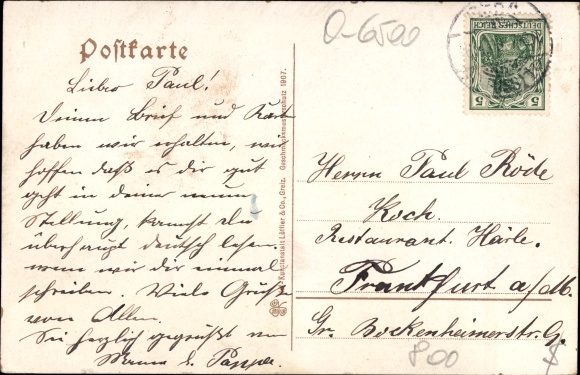 Postkarte
Lieber Paul!
Deinen Brief und Karte
haben wir erhalten, wir
hoffen daß es dir gut
geht in deiner neuen
Stellung, kannst du
überhaupt deutsch lesen.
wenn wir dir einmal
schreiben. Viele Grüße
von Allen.
Sei herzlich gegrüßt von
Mama & Pappa.
Kunstanstalt Löffler & Co., Greiz. Geschmacksmusterschutz 1907.
0-6500
DEUTSCHES REICH
5 5
Herrn Paul Röde
Koch.
Restaurant. Härle.
Frankfurt a/M.
Gr. Bockenheimerstr. G.
800